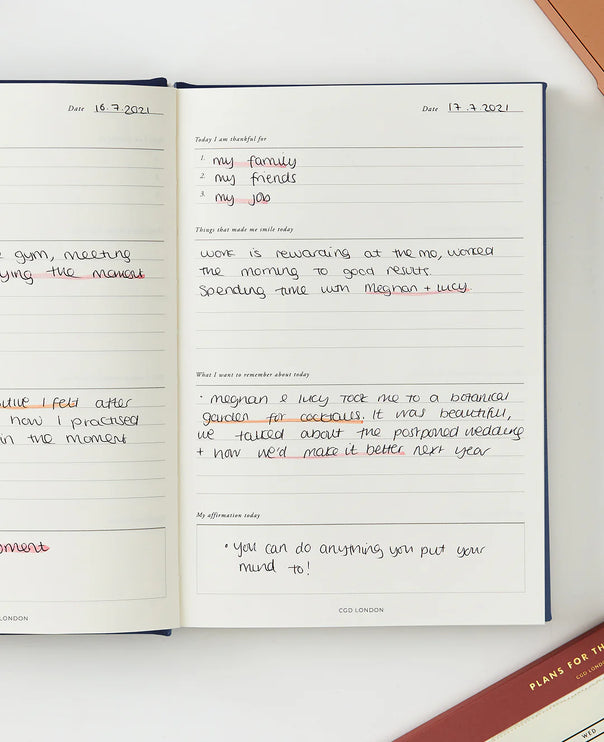 Date 16.7.2021
e gym, meeting
ying the moment
I felt after
how I practised
in the moment
oment
LONDON
Date 17.7.2021
Today I am thankful for
1. my family
2. my friends
3. my job
Things that made me smile today
work is rewarding at the mo, worked
the morning to good results.
Spending time with meghan + lucy.
What I want to remember about today
• meghan & lucy took me to a botanical
garden for cocktails. It was beautiful,
we talked about the postponed wedding
+ how we'd make it better next year
My affirmation today
• you can do anything you put your
mind to!
CGD LONDON
PLANS FOR TH
CGD LONDO
WED